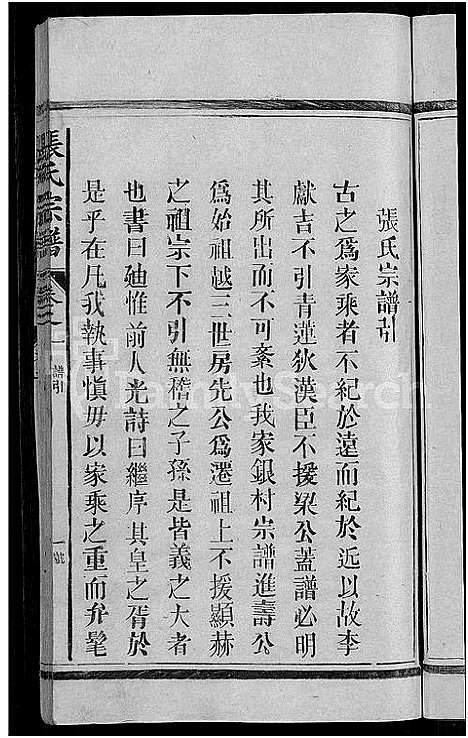 張氏宗譜引
古之爲家乘者不紀於遠而紀於近以故李
獻吉不引青蓮狄漢臣不援梁公蓋譜必明
其所出而不可紊也我家銀村宗譜進壽公
爲始祖越三世房先公爲遷祖上不援顯赫
之祖宗下不引無稽之子孫是皆義之大者
也書曰廸惟前人光詩曰繼序其皇之胥於
是乎在凡我執事愼毋以家乘之重而弁髦
張氏宗譜
卷之
譜引
FamilySearch